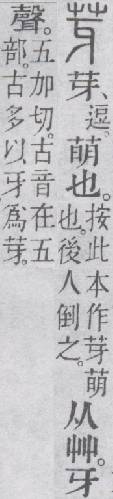 芽芽、逗。萌也。按此本作芽萌也。後人倒之。从艸。牙
聲。五加切。古音在五部。古多以牙爲芽。